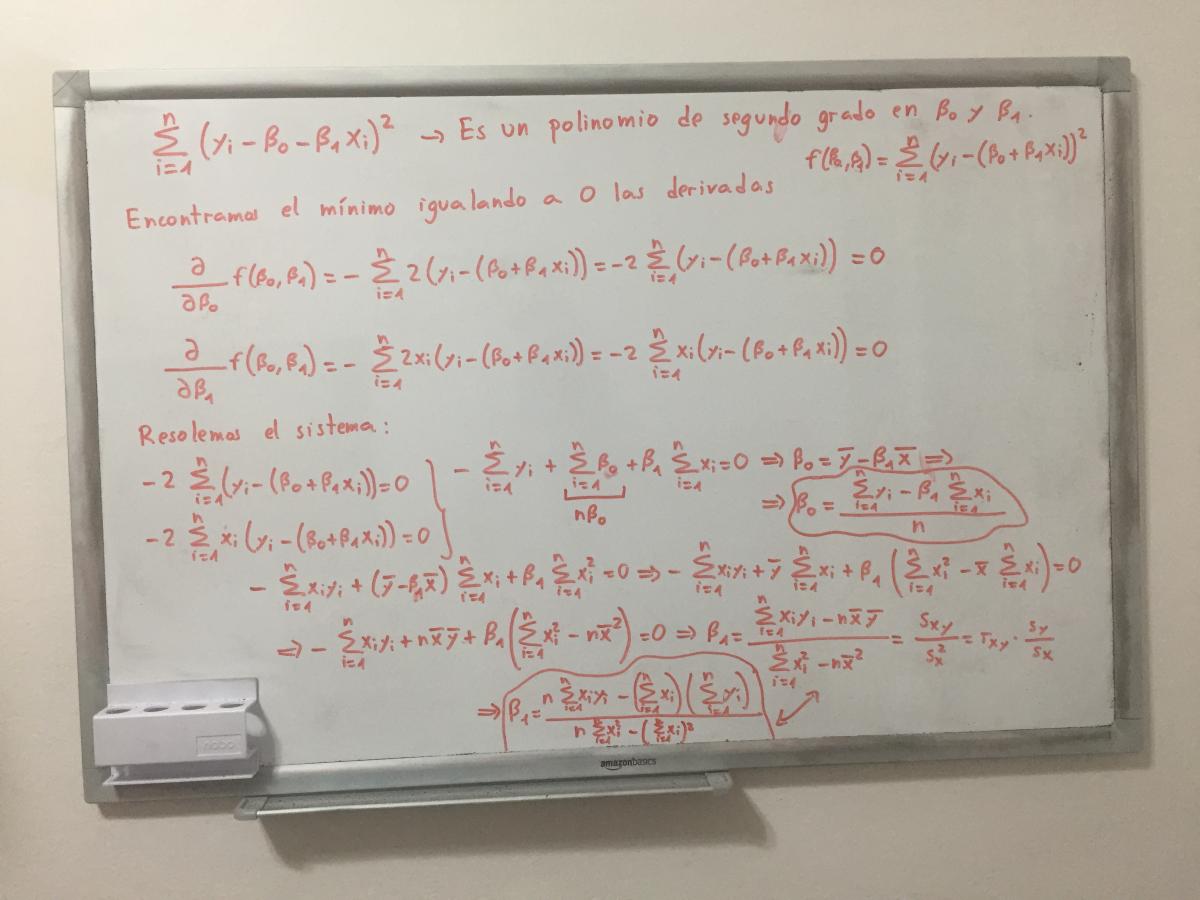 ∑_{i=1}^{n} (y_i - β_0 - β_1 x_i)^2 → Es un polinomio de segundo grado en β_0 y β_1.
f(β_0, β_1) = ∑_{i=1}^{n} (y_i - (β_0 + β_1 x_i))^2
Encontramos el mínimo igualando a 0 las derivadas
∂/∂β_0 f(β_0, β_1) = - ∑_{i=1}^{n} 2 (y_i - (β_0 + β_1 x_i)) = -2 ∑_{i=1}^{n} (y_i - (β_0 + β_1 x_i)) = 0
∂/∂β_1 f(β_0, β_1) = - ∑_{i=1}^{n} 2x_i (y_i - (β_0 + β_1 x_i)) = -2 ∑_{i=1}^{n} x_i (y_i - (β_0 + β_1 x_i)) = 0
Resolemos el sistema:
-2 ∑_{i=1}^{n} (y_i - (β_0 + β_1 x_i)) = 0
-2 ∑_{i=1}^{n} x_i (y_i - (β_0 + β_1 x_i)) = 0
- ∑_{i=1}^{n} y_i + ∑_{i=1}^{n} β_0 + β_1 ∑_{i=1}^{n} x_i = 0 ⇒ β_0 = ȳ - β_1 x̄ ⇒
nβ_0
⇒ β_0 = (∑_{i=1}^{n} y_i - β_1 ∑_{i=1}^{n} x_i) / n
- ∑_{i=1}^{n} x_i y_i + (ȳ - β_1 x̄) ∑_{i=1}^{n} x_i + β_1 ∑_{i=1}^{n} x_i^2 = 0 ⇒ - ∑_{i=1}^{n} x_i y_i + ȳ ∑_{i=1}^{n} x_i + β_1 (∑_{i=1}^{n} x_i^2 - x̄ ∑_{i=1}^{n} x_i) = 0
⇒ - ∑_{i=1}^{n} x_i y_i + n x̄ ȳ + β_1 (∑_{i=1}^{n} x_i^2 - n x̄^2) = 0 ⇒ β_1 = (∑_{i=1}^{n} x_i y_i - n x̄ ȳ) / (∑_{i=1}^{n} x_i^2 - n x̄^2) = s_{xy} / s_x^2 = r_{xy} · s_y / s_x
⇒ β_1 = (n ∑_{i=1}^{n} x_i y_i - (∑_{i=1}^{n} x_i) (∑_{i=1}^{n} y_i)) / (n ∑_{i=1}^{n} x_i^2 - (∑_{i=1}^{n} x_i)^2)
nobo
amazonbasics